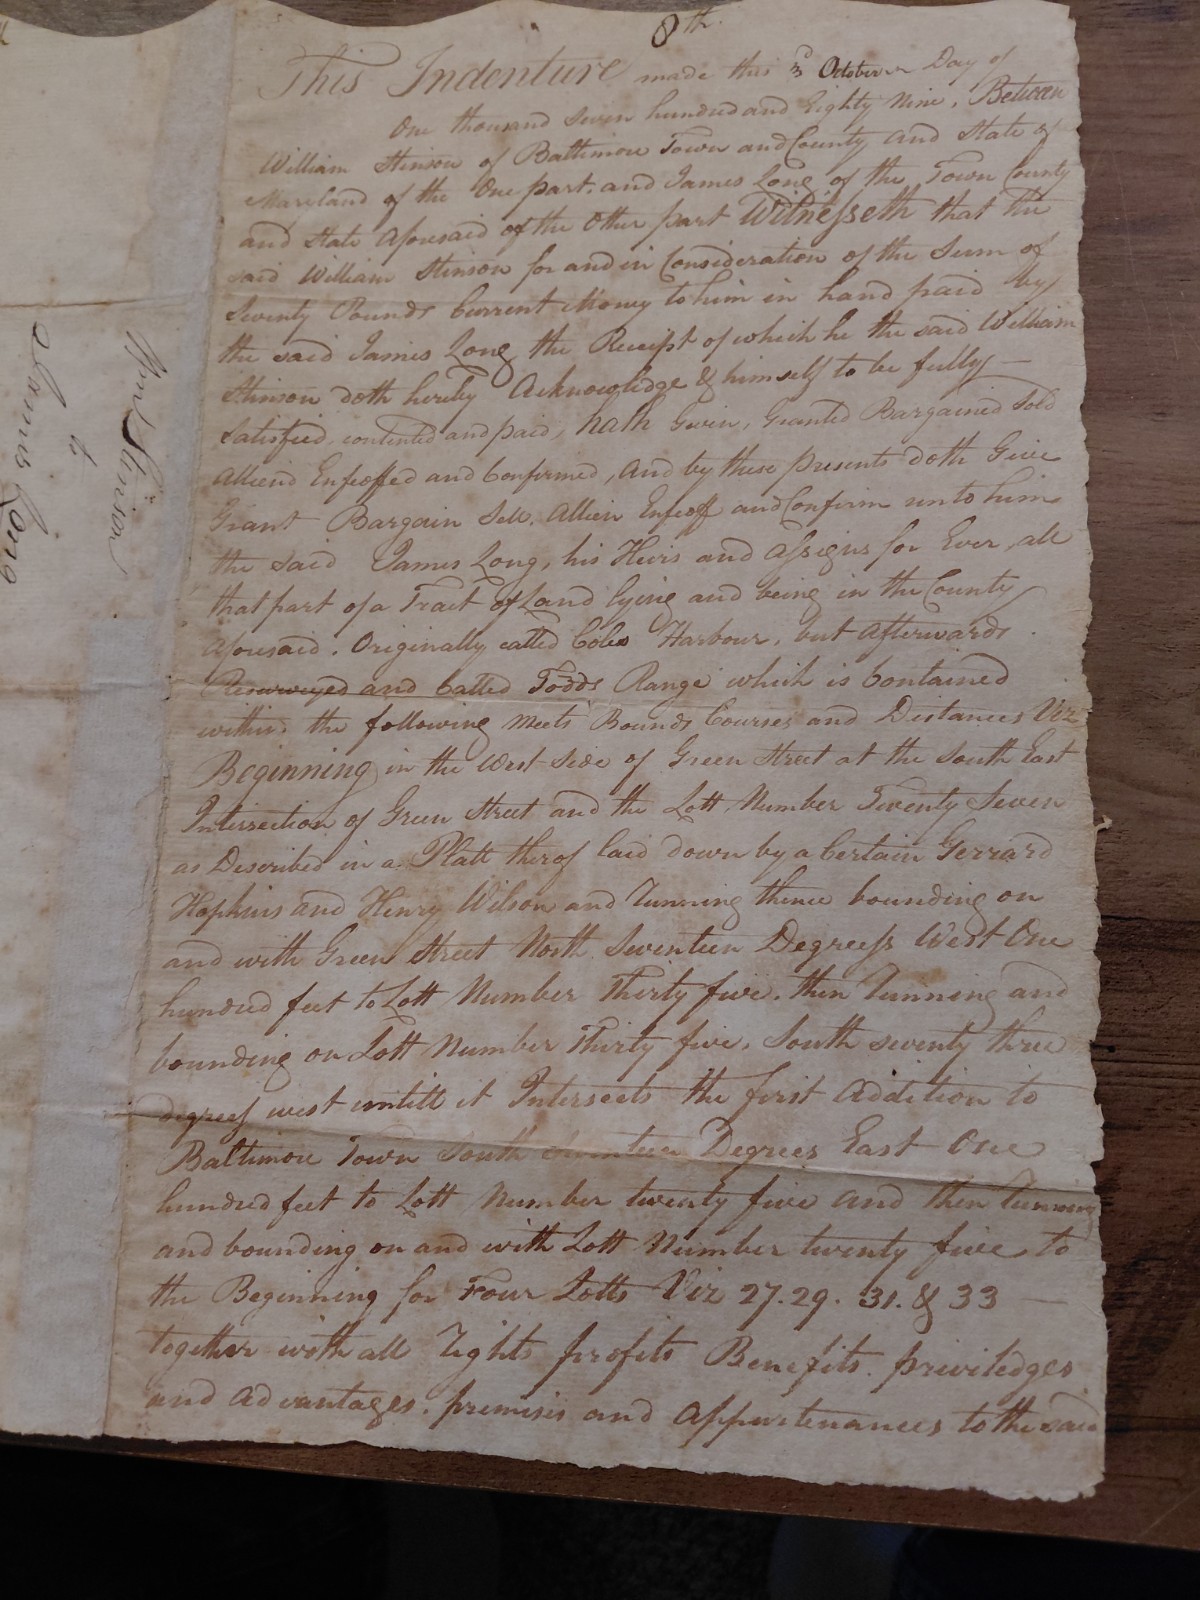 8th.
This Indenture made this 3d October Day of
One thousand Seven hundred and Eighty Nine, Between
William Stinson of Baltimore Town and County and State of
Maryland of the One part, and James Long of the Town County
and State Aforesaid of the Other part Witnesseth that the
said William Stinson for and in Consideration of the Sum of
Seventy Pounds Current Money to him in hand paid by
the said James Long the Receipt of which he the said William
Stinson doth hereby Acknowlidge & himself to be fully —
Satisfied, contented and paid, hath Given, Granted Bargained Sold
Aliend Enfeoffed and Confirmed, and by these presents doth Give
Grant Bargain Sell, Allien Enfeoff and Confirm unto him
the said James Long, his Heirs and Assigns for Ever, all
that part of a Tract of Land lying and being in the County
Aforesaid. Originally called Coles Harbour, but Afterwards
Resurveyed and Called Todds Range which is Contained
within the following Meets Bounds Courses and Distances Viz
Beginning in the West Side of Green Street at the South East
Intersection of Green Street and the Lott Number Twenty Seven
as Described in a Platt therof laid down by a Certain Gerrard
Hopkins and Henry Wilson and Running thence bounding on
and with Green Street North Seventeen Degrees West One
hundred feet to Lott Number Thirty five, then Running and
bounding on Lott Number Thirty five, South seventy three
degrees west untill it Intersects the first Addition to
Baltimore Town South Seventeen Degrees East One
hundred feet to Lott Number twenty five and then Running
and bounding on and with Lott Number twenty five to
the Beginning for Four Lotts Viz 27. 29. 31. & 33 —
together with all Rights profits Benefits. priviledges
and advantages. premises and Appurtenances to the said
Wm Stinson
to
James Long